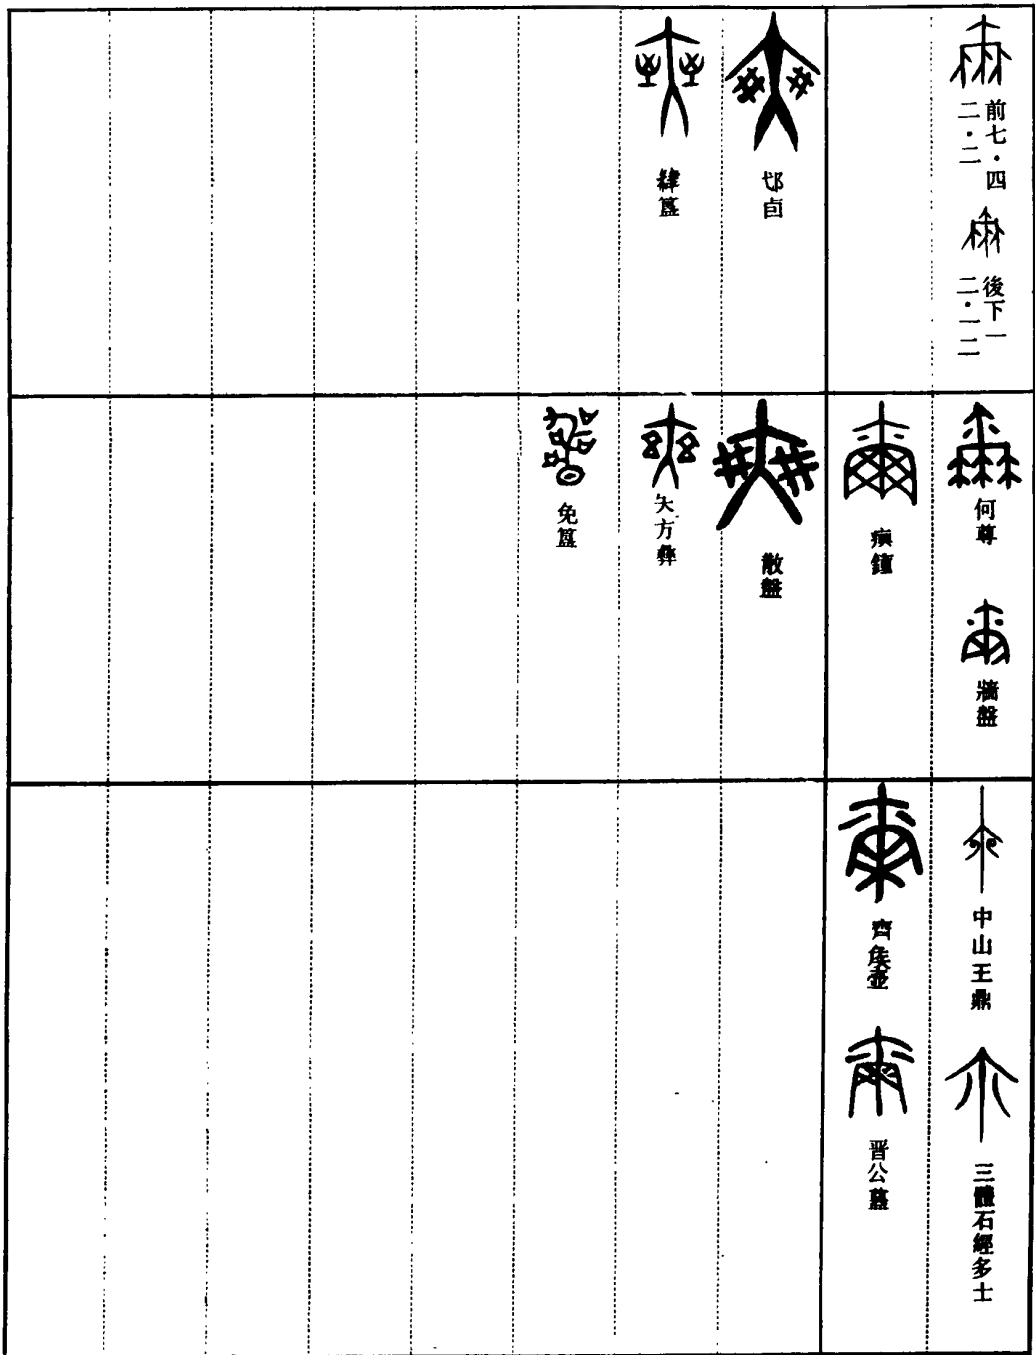 前七·四
二·二
後下一
二·一二
卣
肄簋
何尊
牆盤
𤼈鐘
散盤
夨方彝
免簋
中山王鼎
三體石經多士
齊侯壺
晋公𥂴